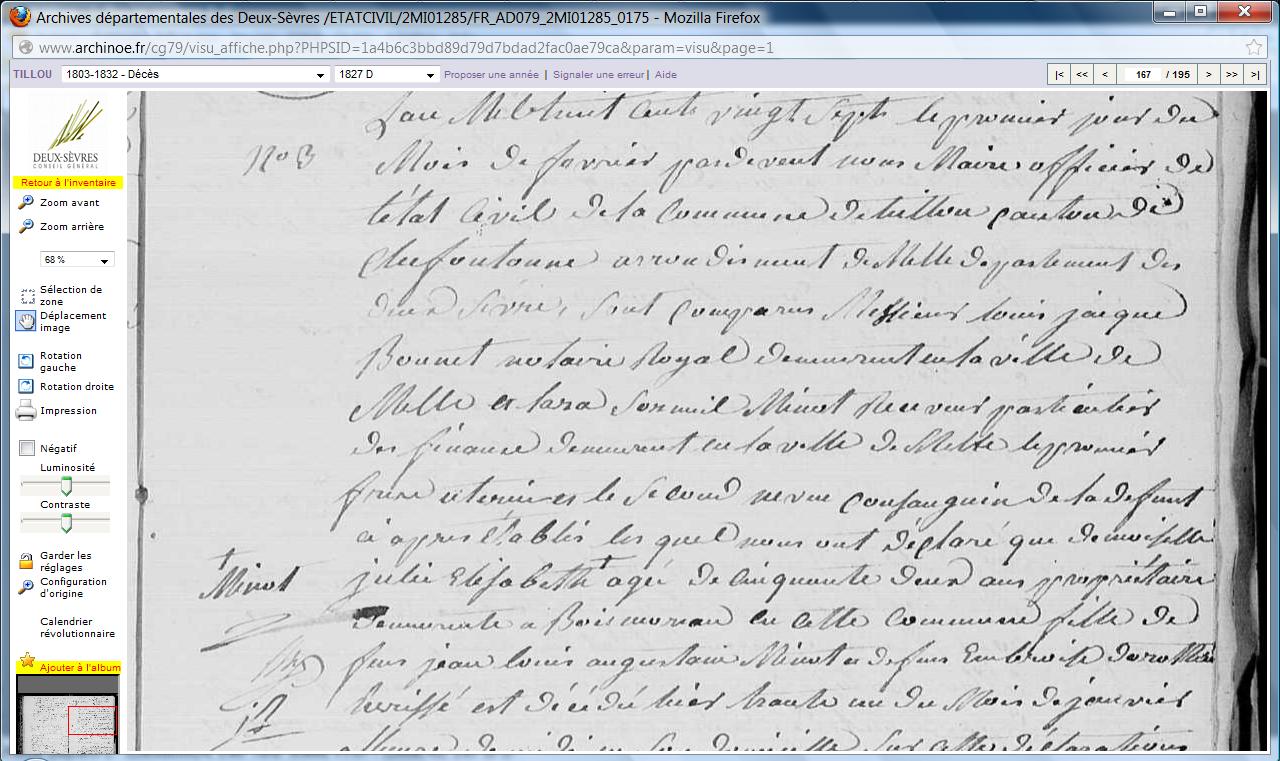 Archives départementales des Deux-Sèvres /ETATCIVIL/2MI01285/FR_AD079_2MI01285_0175 - Mozilla Firefox
www.archinoe.fr/cg79/visu_affiche.php?PHPSID=1a4b6c3bbd89d79d7bdad2fac0ae79ca&param=visu&page=1
TILLOU 1803-1832 - Décès 1827 D Proposer une année | Signaler une erreur | Aide |< << < 167 / 195 > >> >|
DEUX-SÈVRES
CONSEIL GÉNÉRAL
Retour à l'inventaire
Zoom avant
Zoom arrière
68 %
Sélection de
zone
Déplacement
image
Rotation
gauche
Rotation droite
Impression
Négatif
Luminosité
Contraste
Garder les
réglages
Configuration
d'origine
Calendrier
révolutionnaire
Ajouter à l'album
No 3
Minot
Lan Mil huit cents vingt Sept le premier jour du
Mois de fevrier pardevent nous Maire officier de
létat Civil de la Commune de tillou canton de
Chefoutonne arrondisment de Melle departement des
deux Sevres, Sont comparus Messieurs louis jacque
Bonnet notaire Royal demeurent en la ville de
Melle et Minot Receveur particulier
des finance demeurent en la ville de Melle le premier
frere uterin et le Second neveu consanguin de la defunt
à apres établis les quel nous ont déclaré que demoiselle
julie Elisabeth + agée de Cinquante deux ans propriétaire
demeurente a Boismoreau en cette commune fille de
feus jean louis augustain Minot et defeus
est décédé hier trante un du Mois de janvier